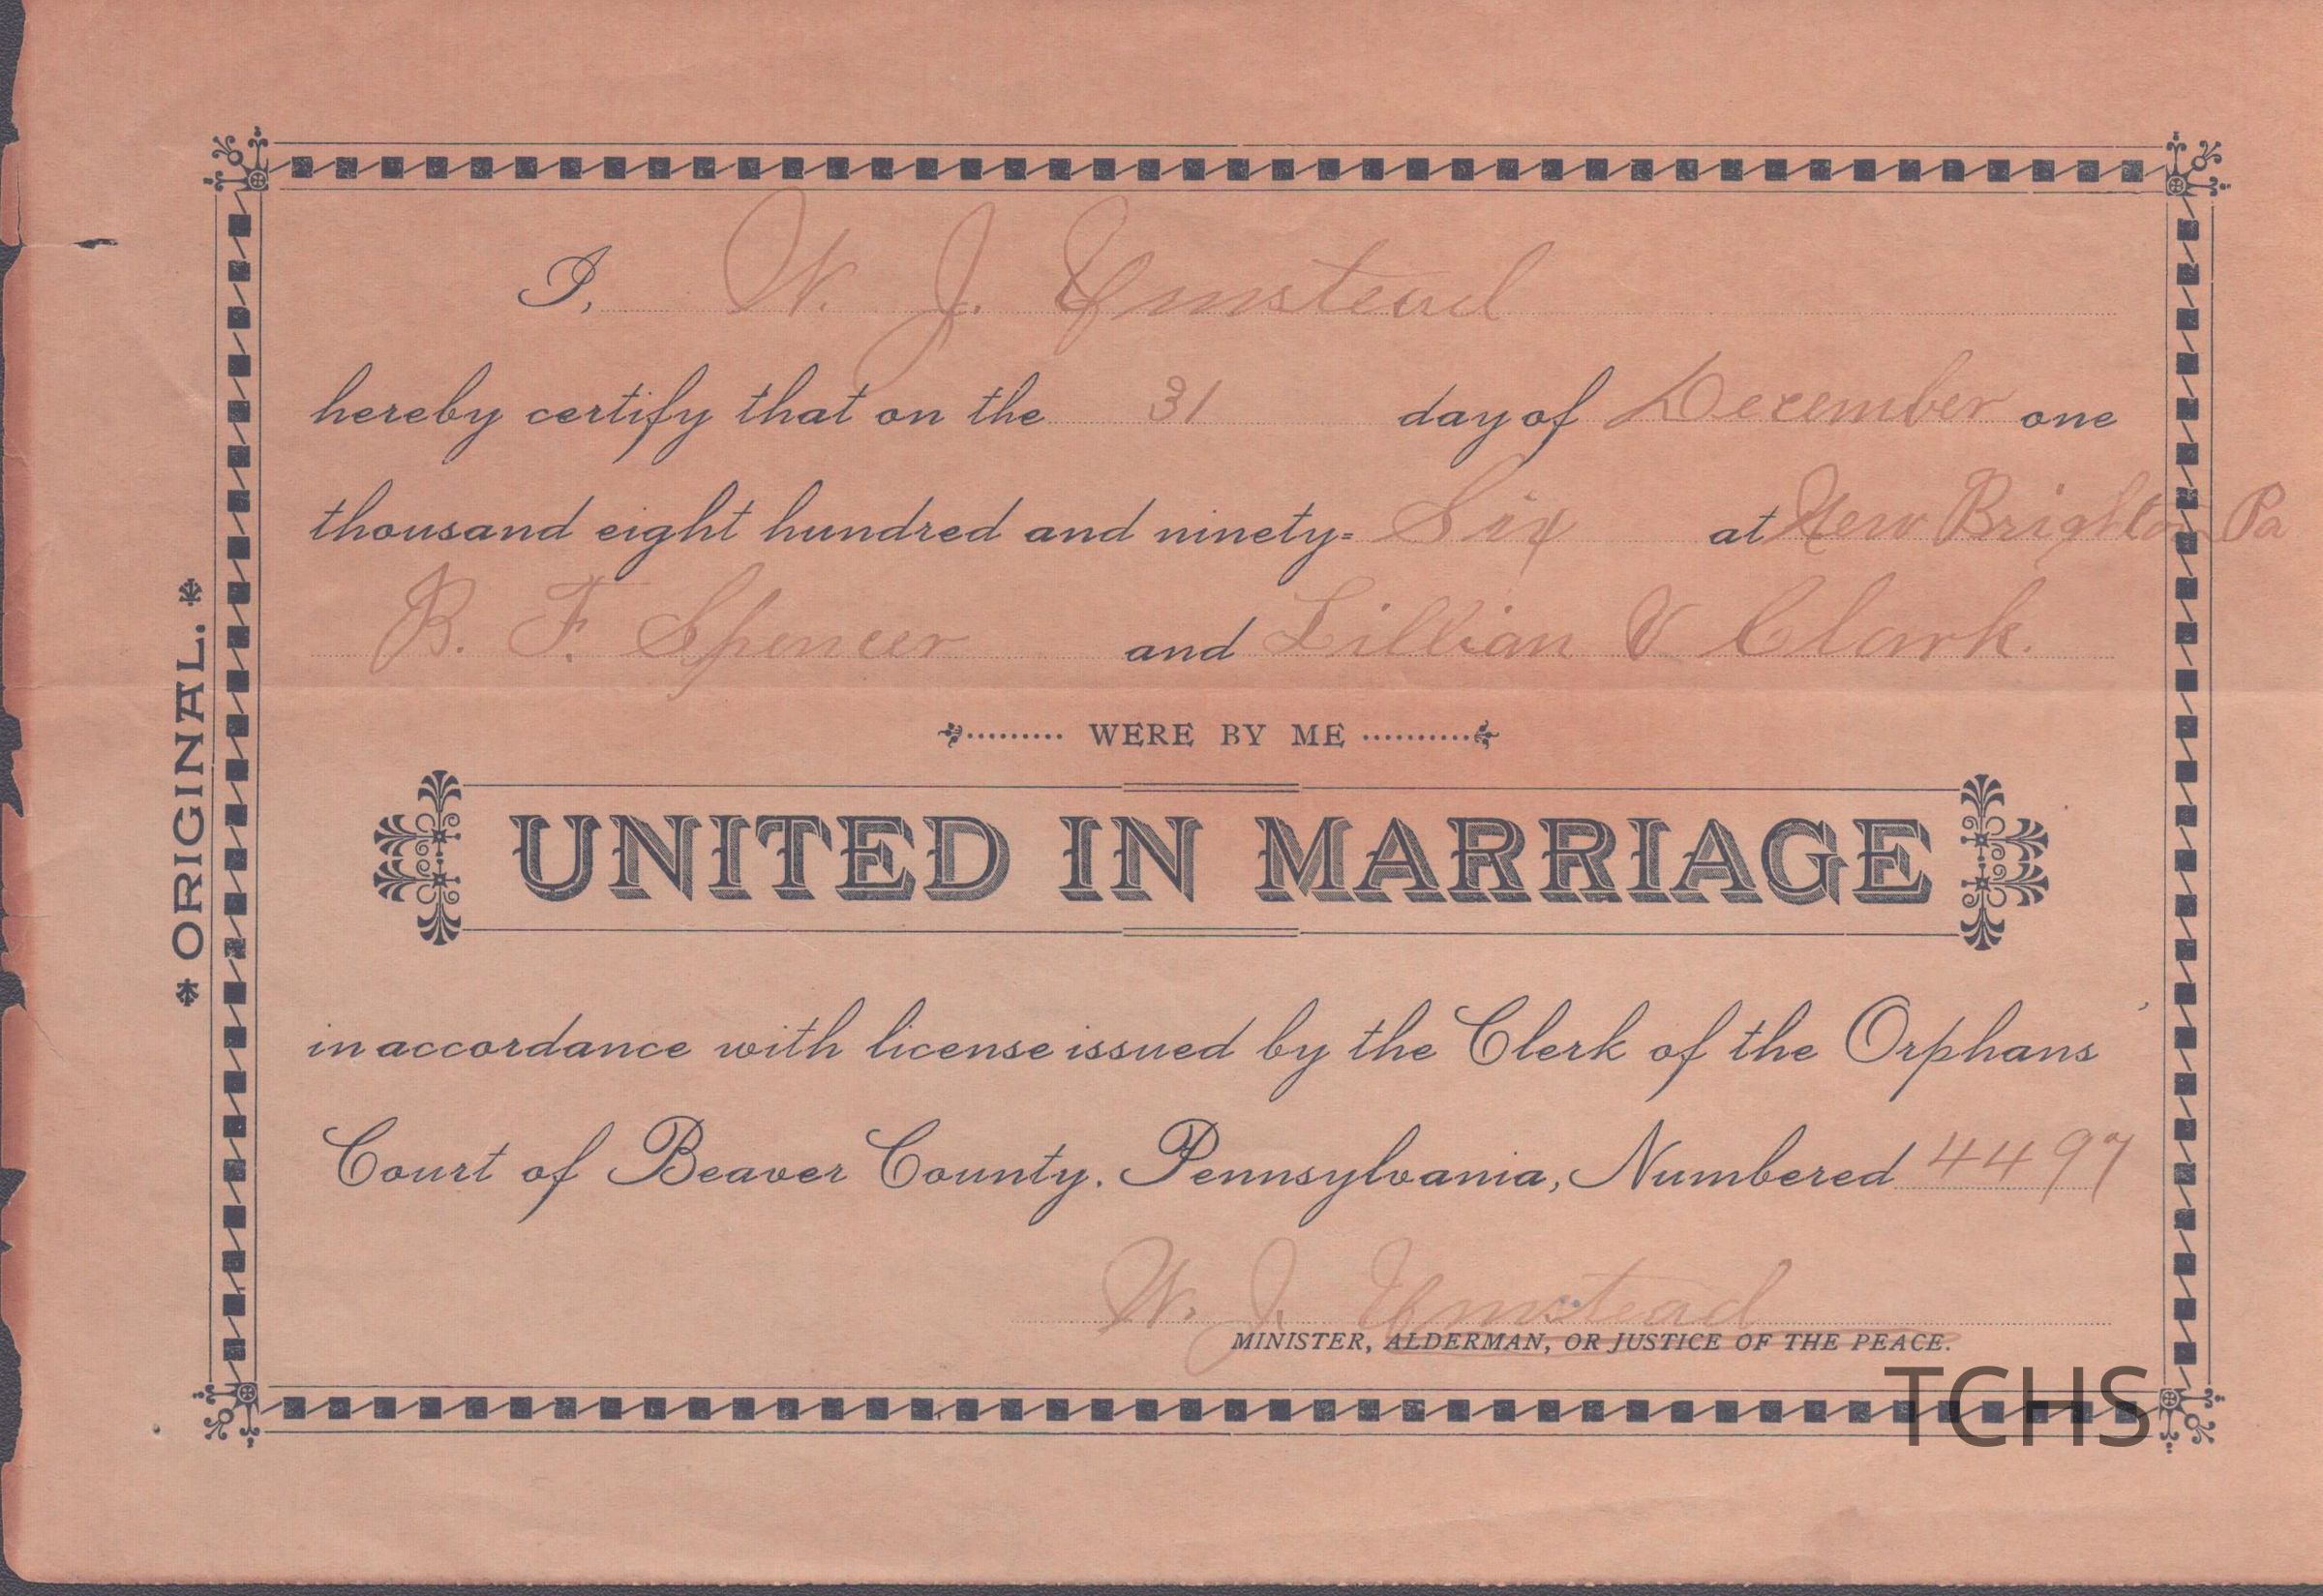 I, W. J. Umstead
hereby certify that on the 31 day of December one
thousand eight hundred and ninety= Six at New Brighton Pa
B. F. Spencer and Lillian V Clark.
WERE BY ME
UNITED IN MARRIAGE
in accordance with license issued by the Clerk of the Orphans
Court of Beaver County, Pennsylvania, Numbered 4497
W. J. Umstead
MINISTER, ALDERMAN, OR JUSTICE OF THE PEACE.
* ORIGINAL. *
TCHS